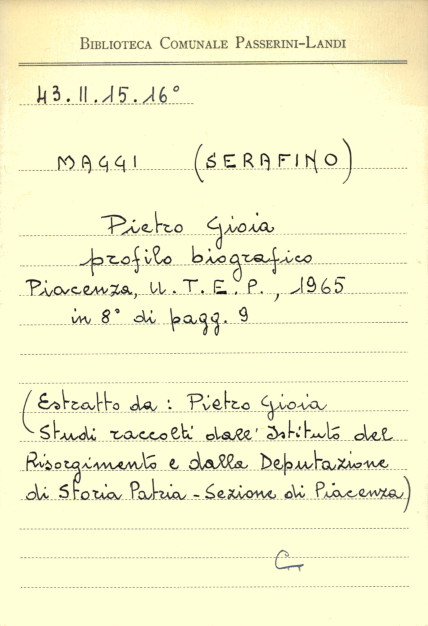 BIBLIOTECA COMUNALE PASSERINI-LANDI
43.II.15.16°
MAGGI (SERAFINO)
Pietro Gioia
profilo biografico
Piacenza, U.T.E.P., 1965
in 8° di pagg. 9
(Estratto da: Pietro Gioia
Studi raccolti dall'Istituto del
Risorgimento e dalla Deputazione
di Storia Patria - Sezione di Piacenza)